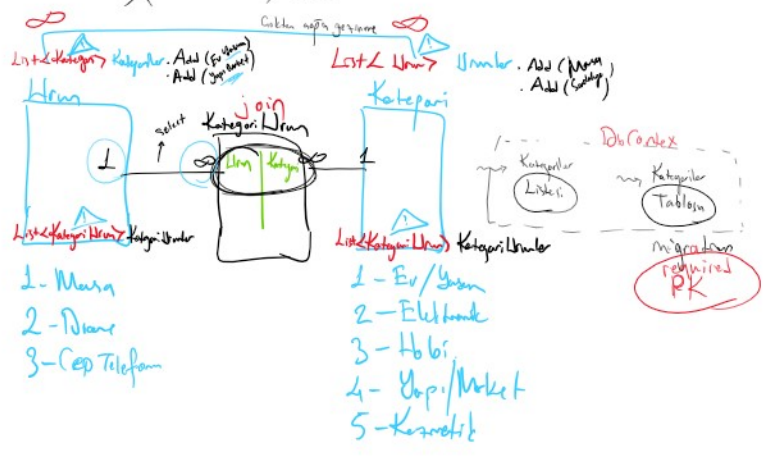 ∞ ∞
Çoktan çoğa gezinme
List<Kategori> Kategoriler . Add (Ev Yaşam)
. Add (Yapı Market)
List< Urun> Urunler . Add (Masa)
. Add (Sandalye)
Urun
Kategori
join
Kategori Urun
select
1 ∞ Urun Kategori ∞ 1
List<KategoriUrun> KategoriUrunler
List<KategoriUrun> KategoriUrunler
DbContex
Kategoriler
Listesi
Kategoriler
Tablosu
migration
required
PK
1 - Masa
2 - Drone
3 - Cep Telefonu
1 - Ev/Yaşam
2 - Elektronik
3 - Hobi
4 - Yapı/Market
5 - Kozmetik